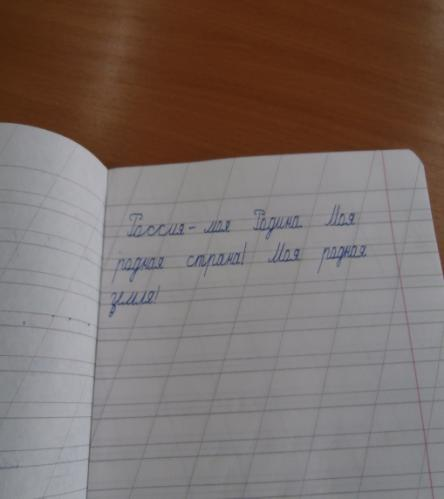 Россия - моя Родина Моя
родная страна! Моя родная
земля!